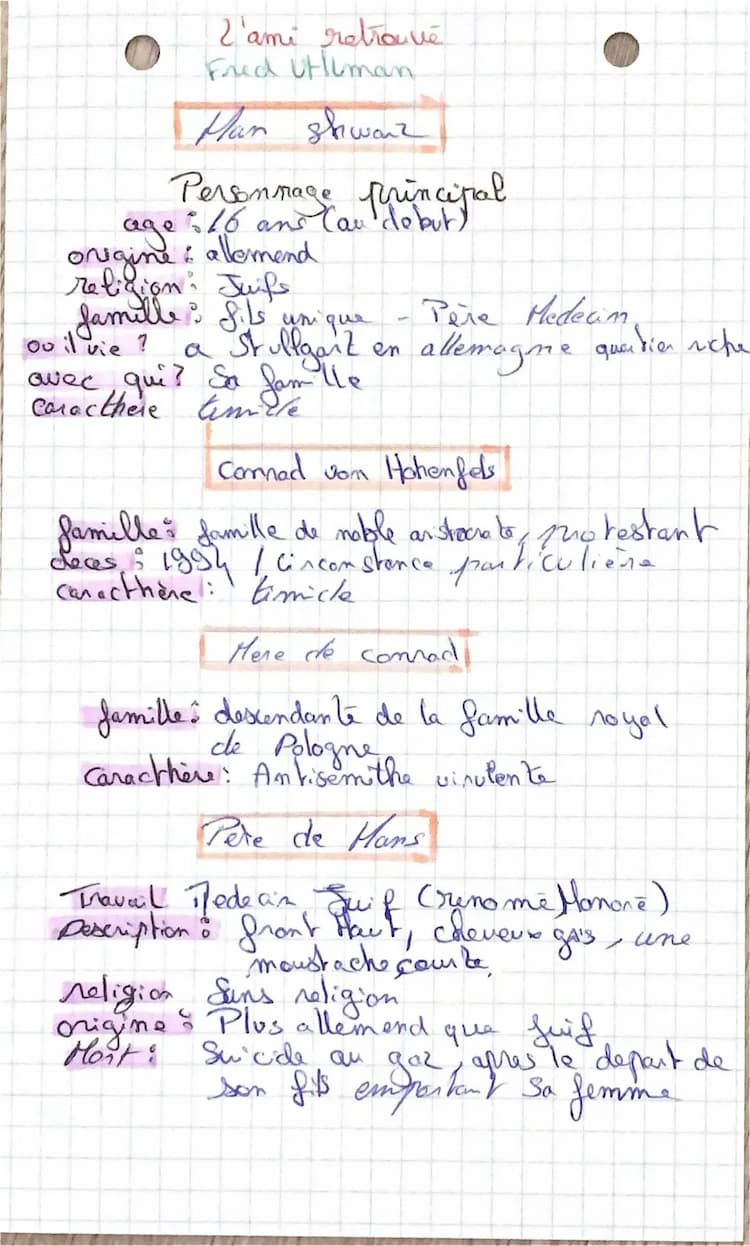 L'ami retrouvé
Fred Uhlman
Han shwarz
Personnage principal
age : 16 ans (au debut)
origine : allemend
religion : Juifs
famille : fils unique - Père Medecin
ou il vie ? a Stullgart en allemagne quartier riche
avec qui ? Sa famille
caracthere timide
Conrad von Hohenfels
famille : famille de noble aristocrate, protestant
deces : 1994 / Circonstence particulière
caracthère : timide
Mere de conrad
famille : descendante de la famille royal
de Pologne
caracthère : Antisemithe virulente
Père de Hans
Travail Medecin Juif (renomé Honoré)
Description : front Haut, cheveux gris, une
moustache courte,
religion Sans religion
origine : Plus allemend que juif
Mort : Suicide au gaz, apres le depart de
son fils emportant sa femme